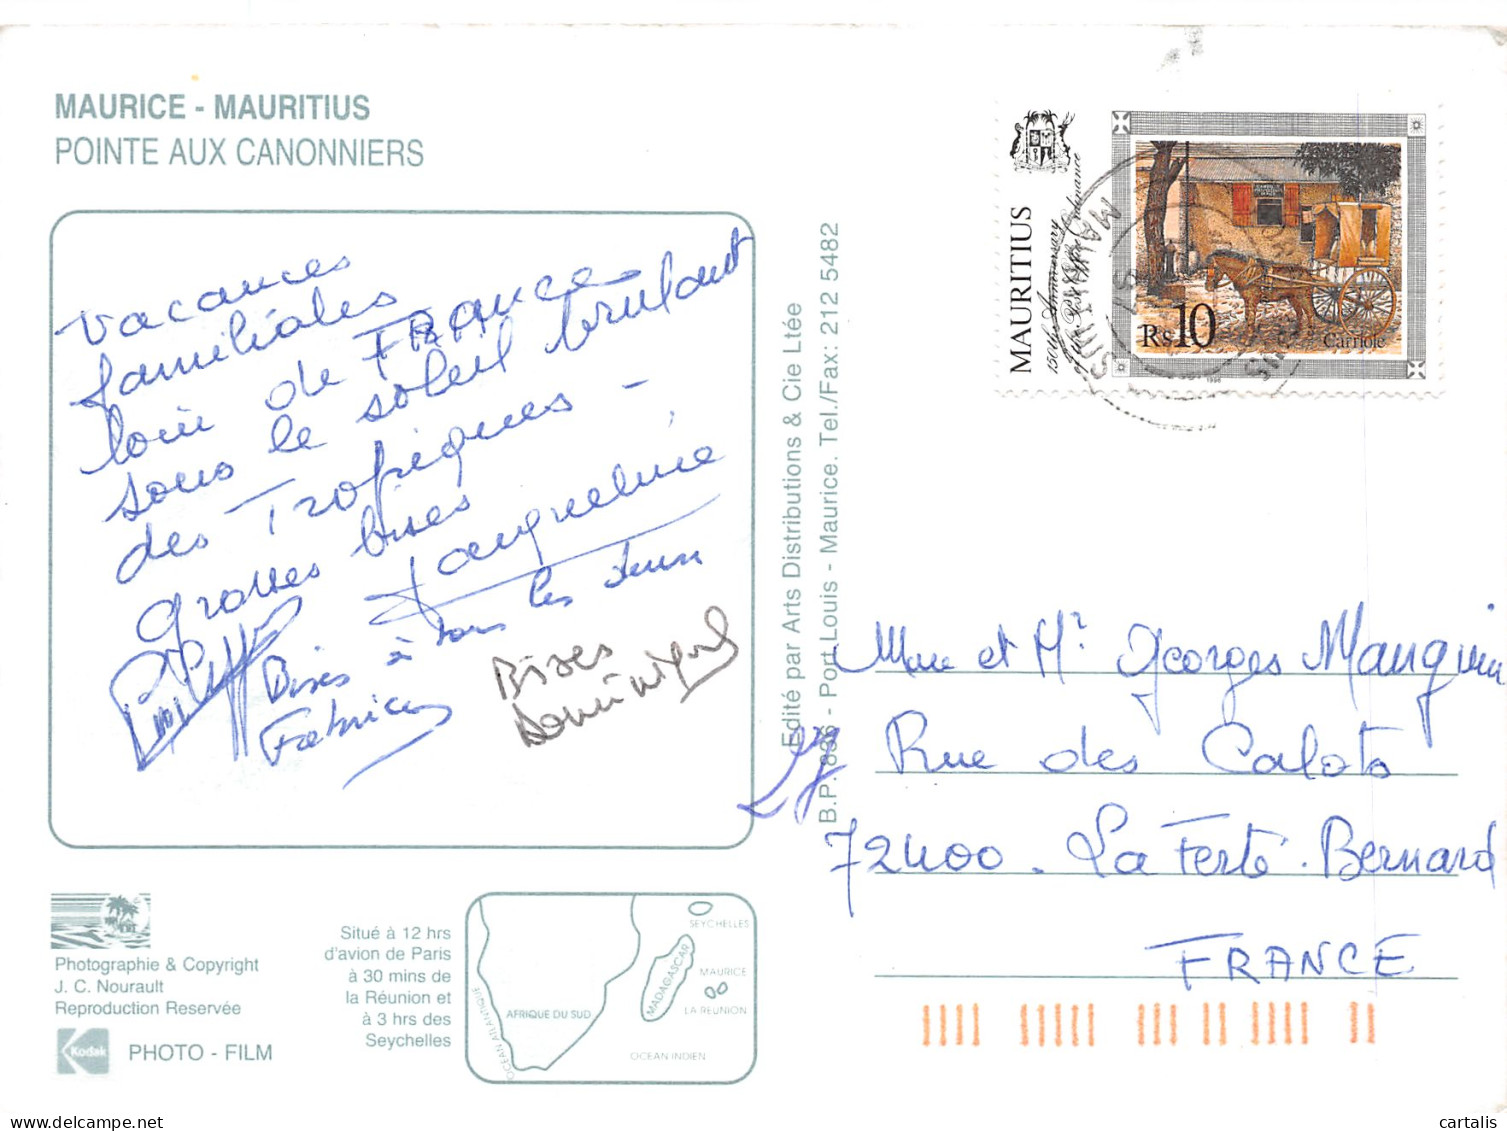 MAURICE - MAURITIUS
POINTE AUX CANONNIERS
Vacances
familiales
loin de FRance
sous le soleil brulant
des Tropiques -
grosses bises
Jacqueline
Bises à tous les deux
Fabrice
Bises
Dominique
Edité par Arts Distributions & Cie Ltée
B.P. 838 - Port Louis - Maurice. Tel./Fax: 212 5482
MAURITIUS
150th Anniversary
Rs10
Carriole
1996
Mme et Mr Georges Manguin
27 Rue des Calots
72400 - La Ferté-Bernard
FRANCE
Photographie & Copyright
J. C. Nourault
Reproduction Reservée
Kodak
PHOTO - FILM
Situé à 12 hrs
d'avion de Paris
à 30 mins de
la Réunion et
à 3 hrs des
Seychelles
SEYCHELLES
MADAGASCAR
MAURICE
LA REUNION
AFRIQUE DU SUD
OCEAN ATLANTIQUE
OCEAN INDIEN
cartalis
delcampe.net